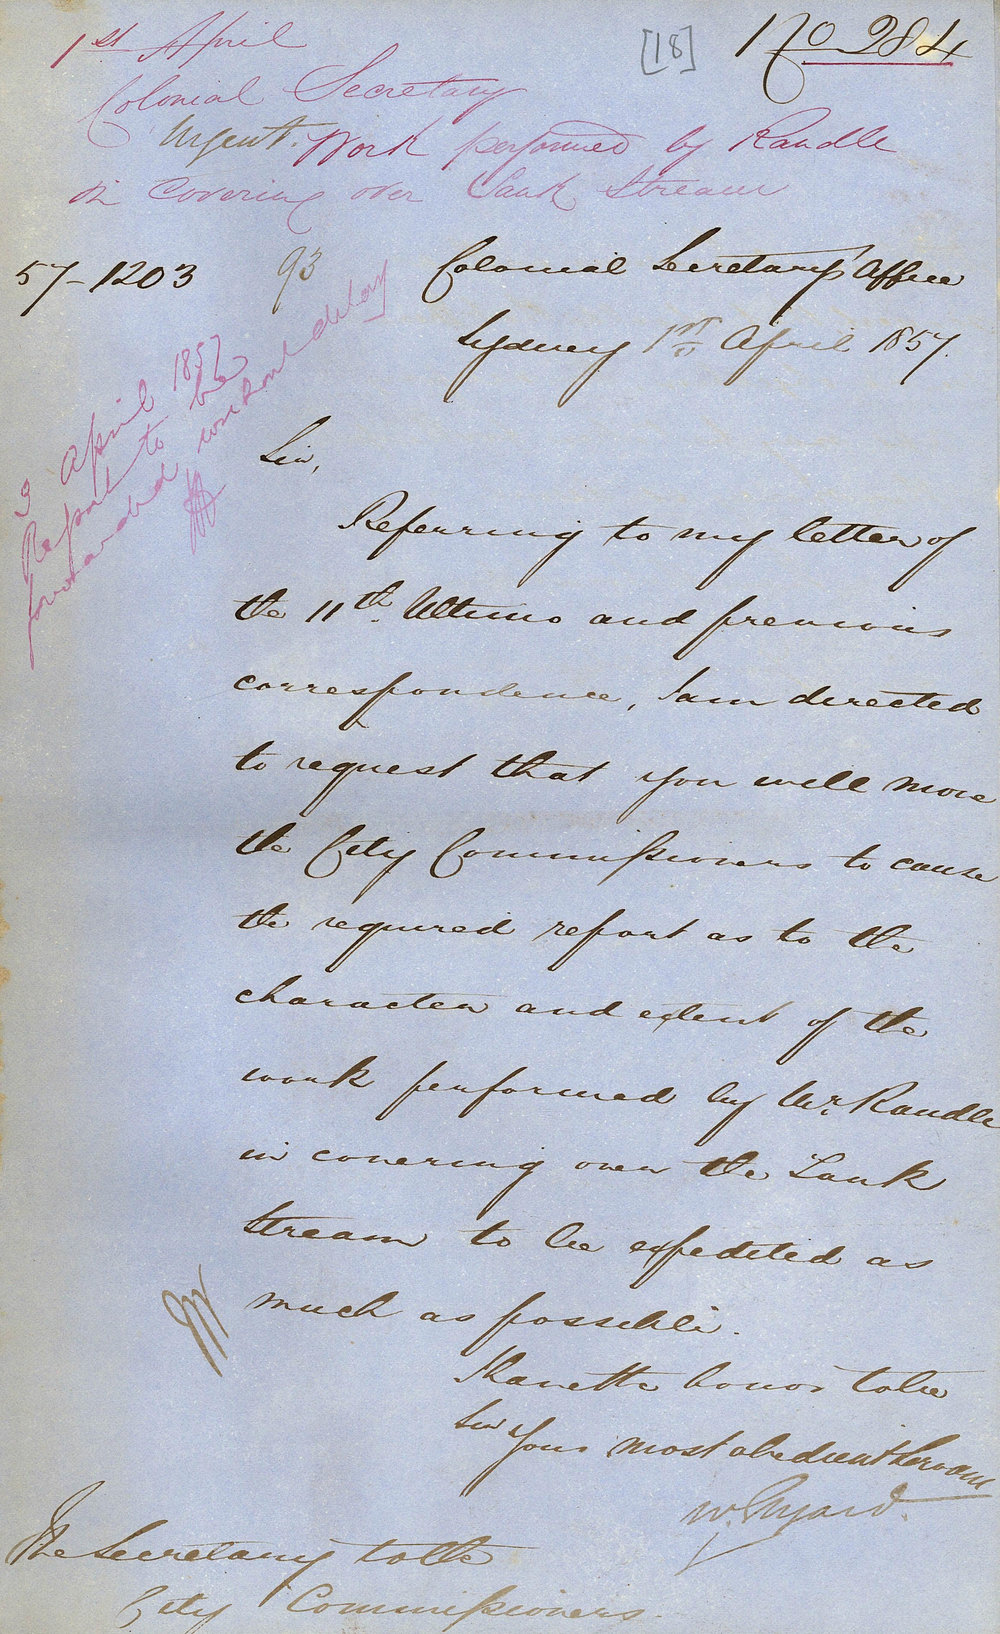 1st April
[18]
No 284
Colonial Secretary
Urgent. Work performed by Randle
in Covering over Tank Stream
57-1203
93
Colonial Secretary's Office
Sydney 1st April 1857.
3 April 1857
Report to be
forwarded without delay
Sir,
Referring to my letter of
the 11th. Ultimo and previous
correspondence, I am directed
to request that you will move
the City Commissioners to cause
the required report as to the
character and extent of the
work performed by Mr. Randle
in covering over the Tank
Stream to be expedited as
much as possible.
I have the honor to be
Sir
Your most obedient Servant
W. Elyard.
The Secretary to the
City Commissioners.